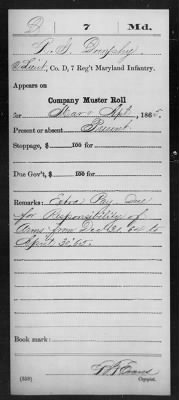 D 7 Md.
D. S. Dempsey
2 Lieut, Co. D, 7 Reg't Maryland Infantry.
Appears on
Company Muster Roll
for Mar & Apl, 1865.
Present or absent Present
Stoppage, $ 100 for
Due Gov't, $ 100 for
Remarks: Extra Pay due
for Responsibility of
Arms from Dec 31, 64 to
April 30 '65.
Book mark:
Evans
(358) Copyist.